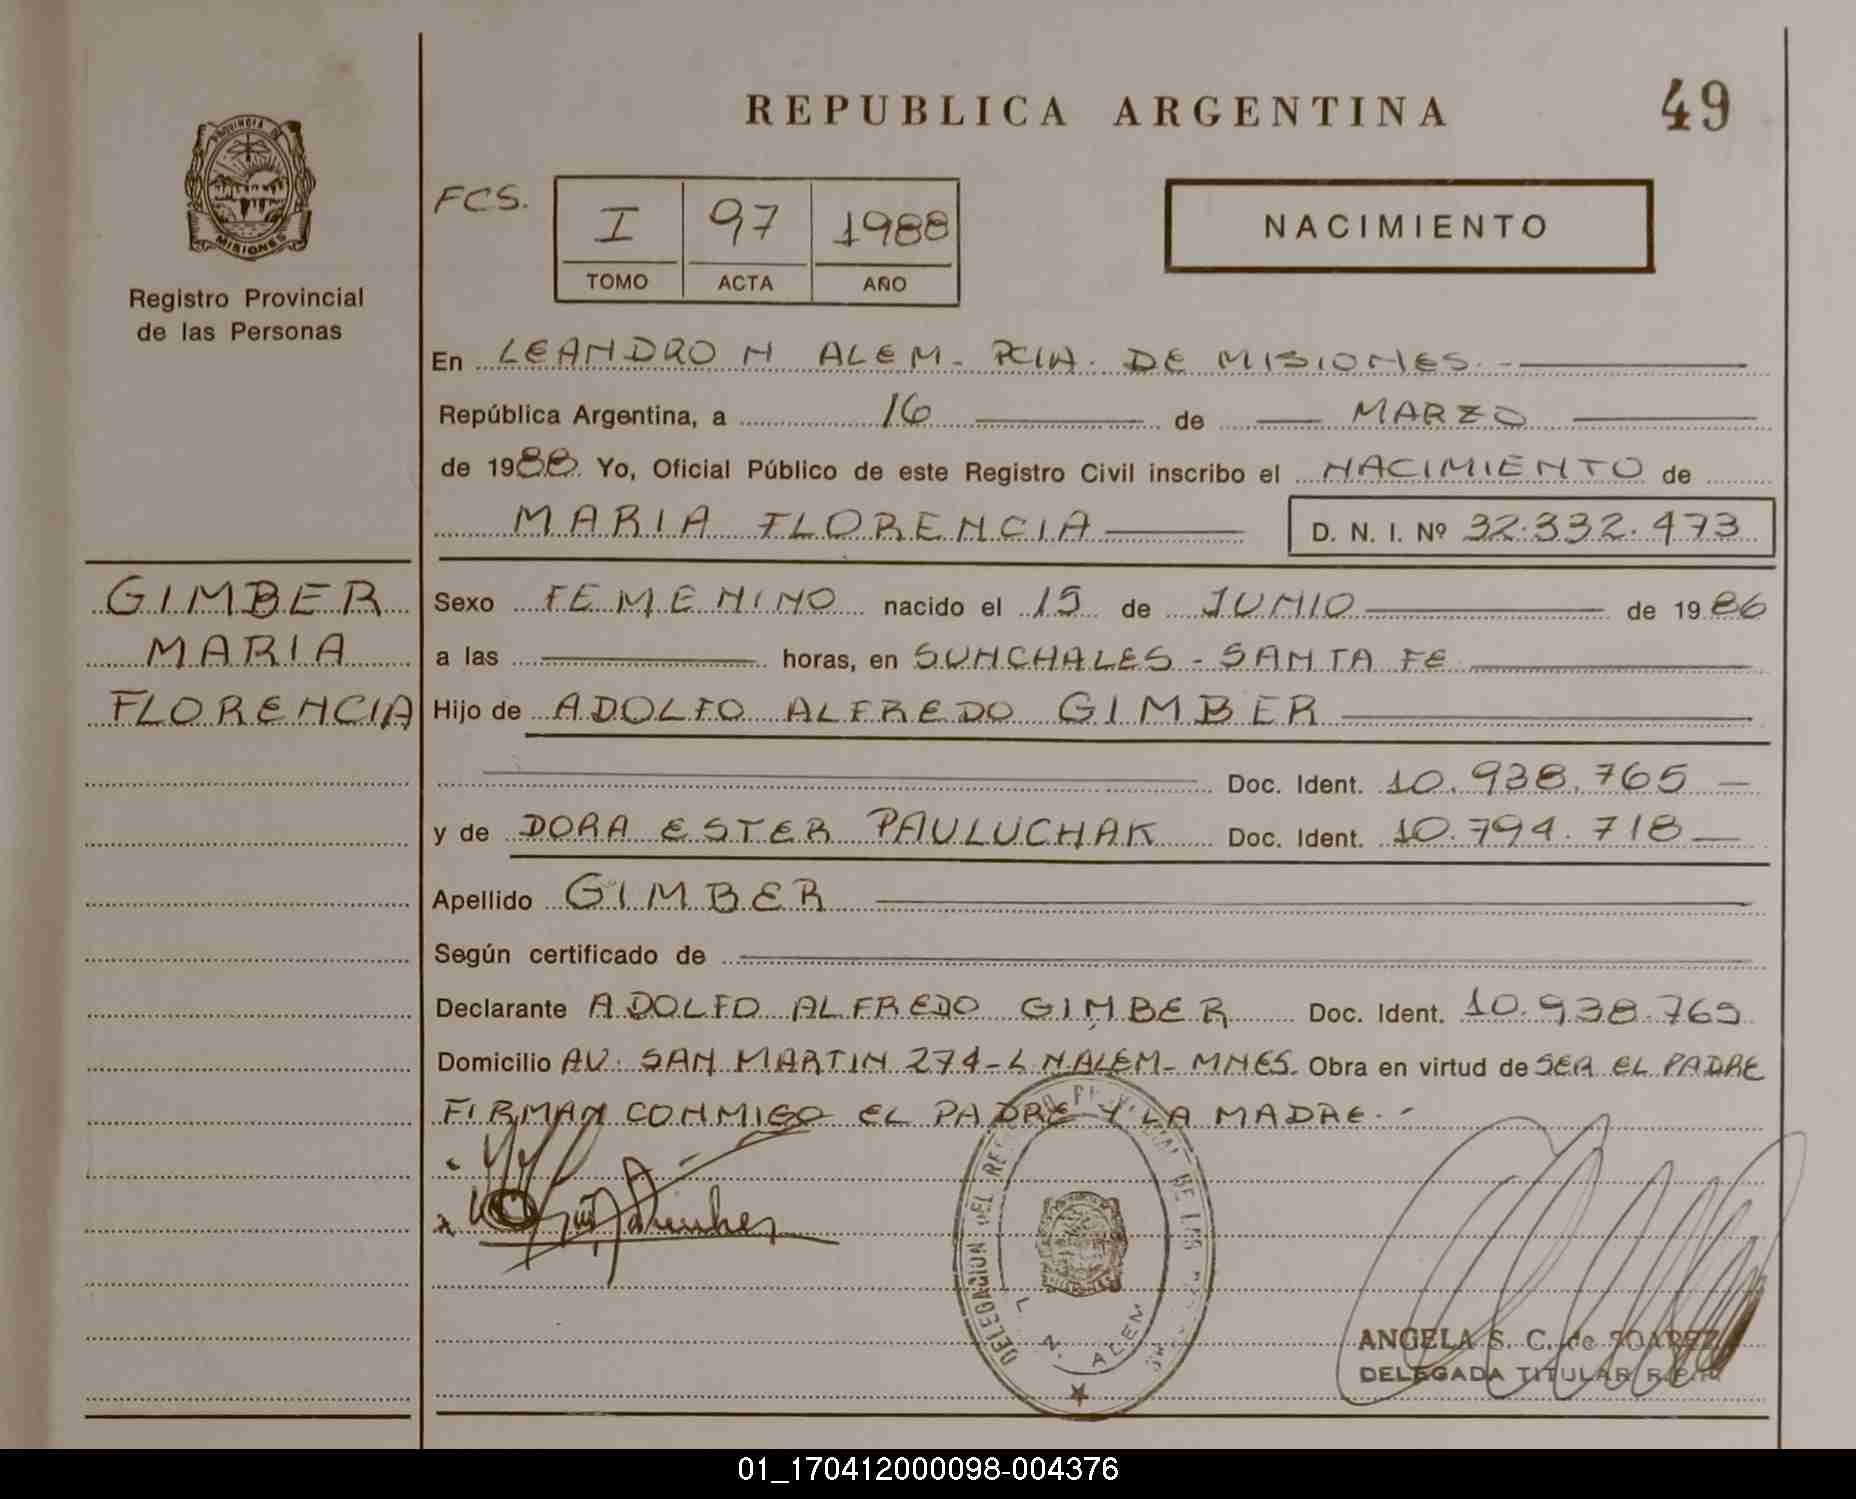 REPUBLICA ARGENTINA 49
PROVINCIA DE
MISIONES
Registro Provincial
de las Personas
FCS. I 97 1988
TOMO ACTA AÑO
NACIMIENTO
En LEANDRO N ALEM - PCIA. DE MISIONES. -
República Argentina, a 16 de MARZO
de 1988. Yo, Oficial Público de este Registro Civil inscribo el NACIMIENTO de
MARIA FLORENCIA D. N. I. Nº 32.332.473
GIMBER
MARIA
FLORENCIA
Sexo FEMENINO nacido el 15 de JUNIO de 1986
a las horas, en SUNCHALES - SANTA FE
Hijo de ADOLFO ALFREDO GIMBER
Doc. Ident. 10.938.765 -
y de DORA ESTER PAULUCHAK Doc. Ident. 10.794.718 -
Apellido GIMBER
Según certificado de
Declarante ADOLFO ALFREDO GIMBER Doc. Ident. 10.938.765
Domicilio AV. SAN MARTIN 274 - L N. ALEM - MNES. Obra en virtud de SER EL PADRE
FIRMAN CONMIGO EL PADRE Y LA MADRE. -
DELEGACION DEL DE LAS
L. N. ALEM
ANGELA S. C. de SOAREZ
DELEGADA TITULAR R.P.P.
01_170412000098-004376